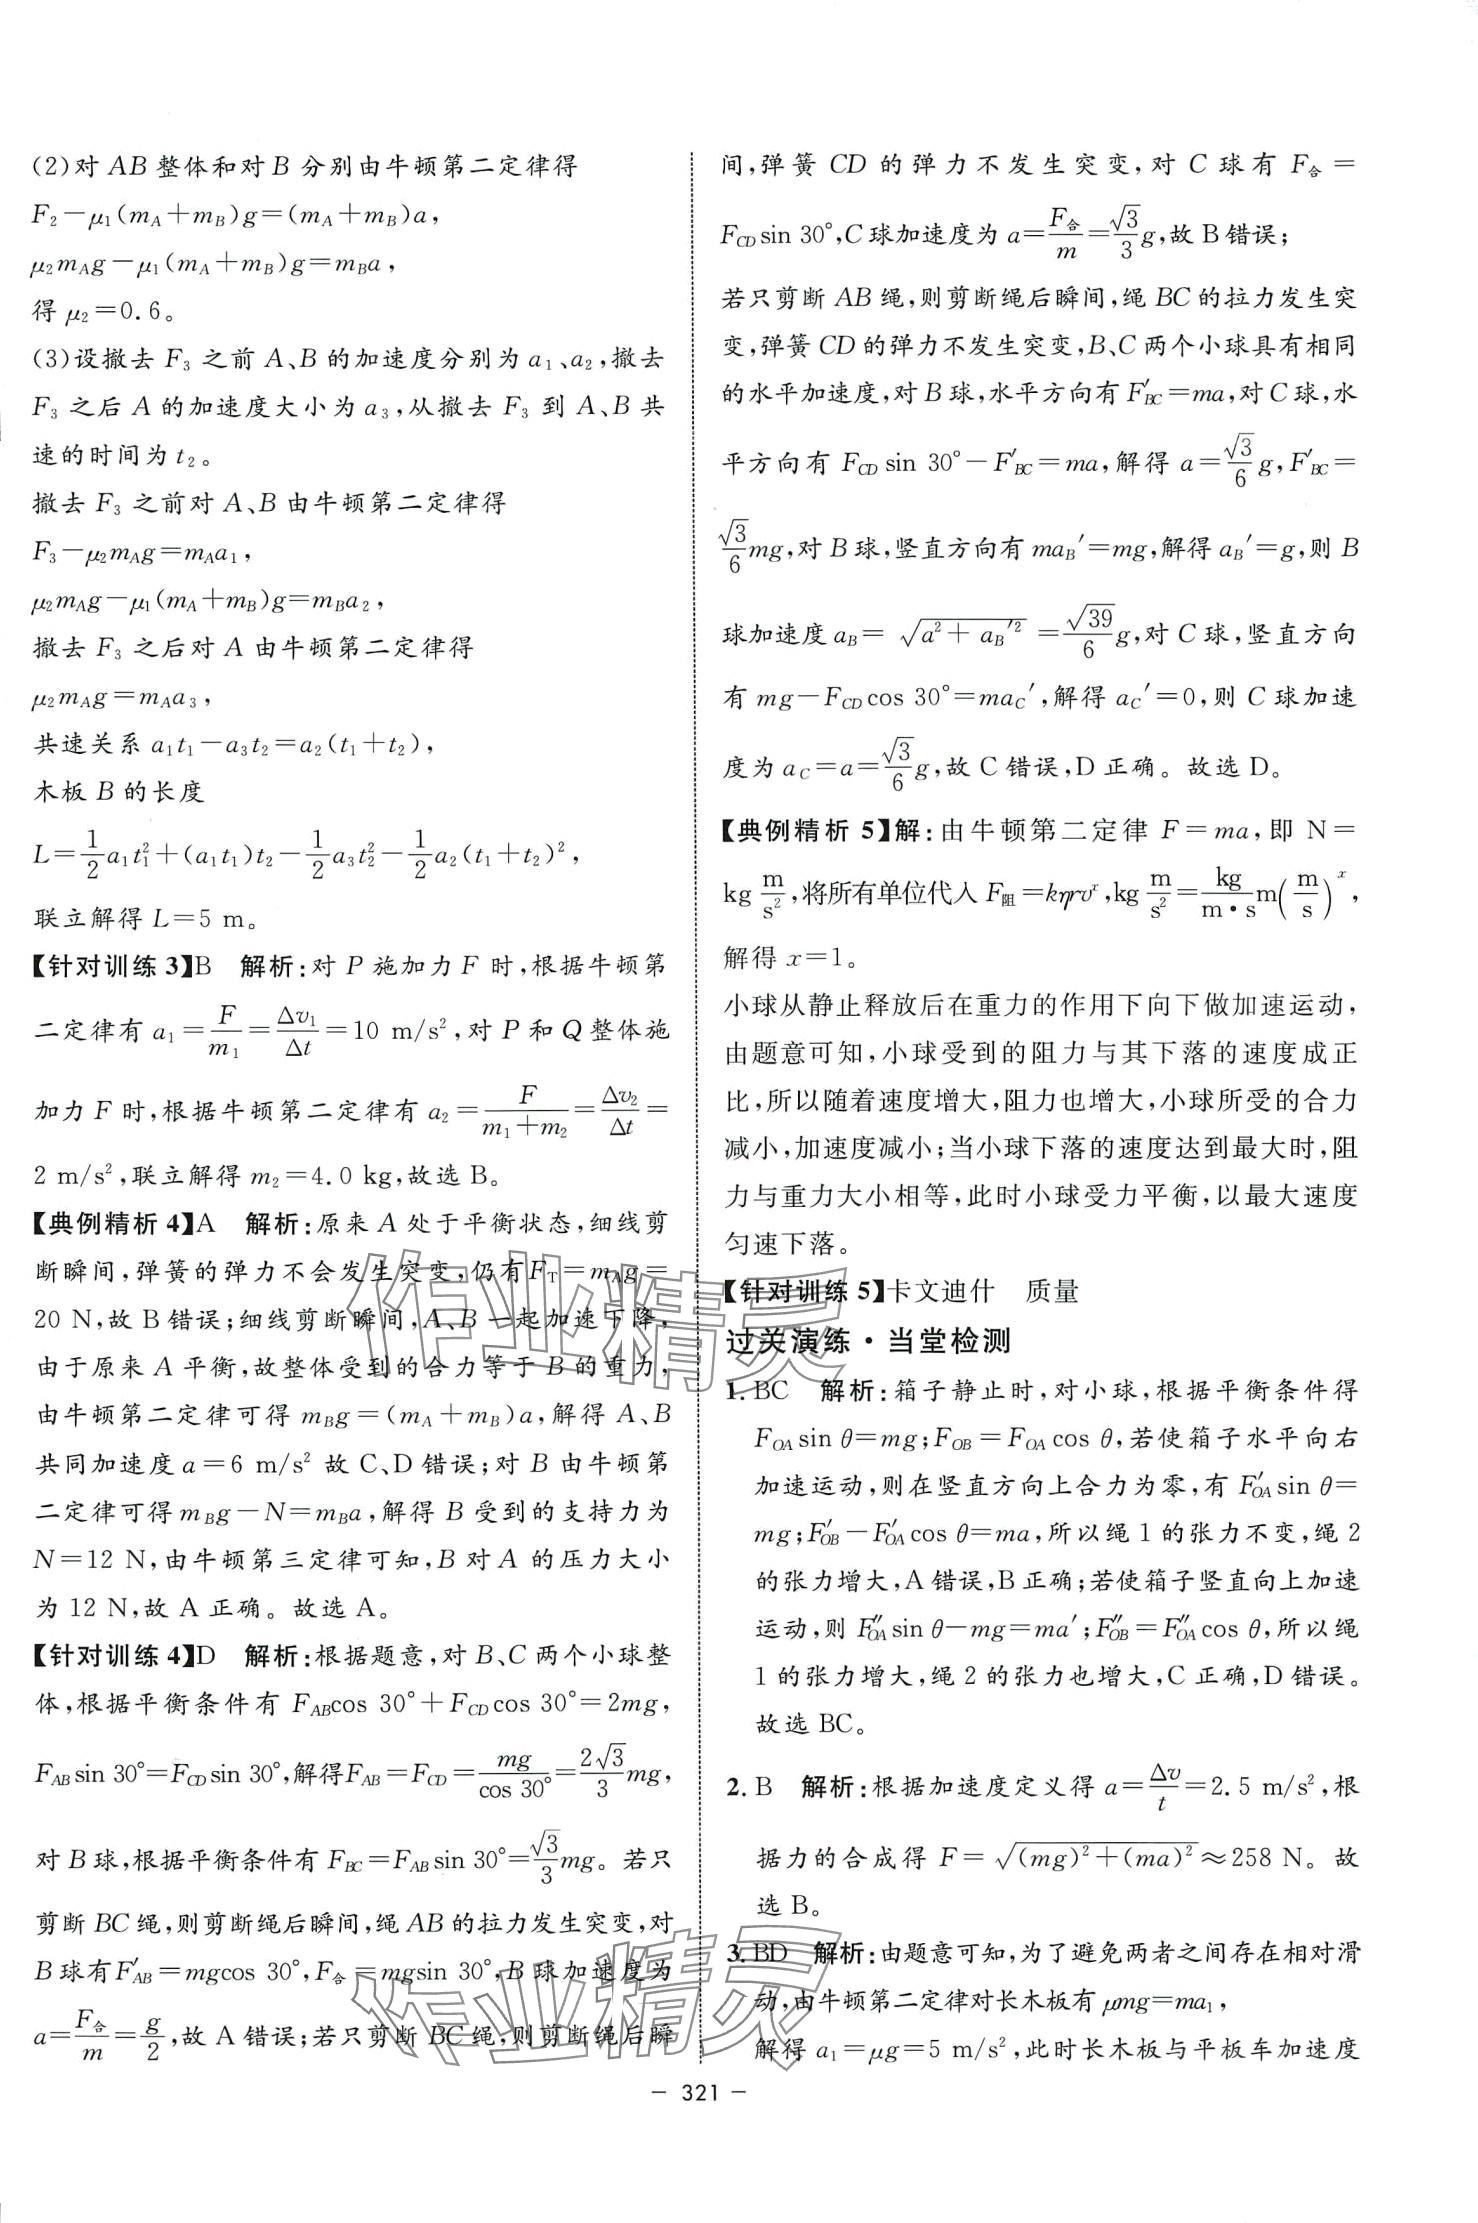 (2)对 AB 整体和对 B 分别由牛顿第二定律得
F₂－μ₁(m_A＋m_B)g＝(m_A＋m_B)a,
μ₂m_Ag－μ₁(m_A＋m_B)g＝m_Ba,
得 μ₂＝0.6。
(3)设撤去 F₃ 之前 A、B 的加速度分别为 a₁、a₂,撤去
F₃ 之后 A 的加速度大小为 a₃,从撤去 F₃ 到 A、B 共
速的时间为 t₂。
撤去 F₃ 之前对 A、B 由牛顿第二定律得
F₃－μ₂m_Ag＝m_Aa₁,
μ₂m_Ag－μ₁(m_A＋m_B)g＝m_Ba₂,
撤去 F₃ 之后对 A 由牛顿第二定律得
μ₂m_Ag＝m_Aa₃,
共速关系 a₁t₁－a₃t₂＝a₂(t₁＋t₂),
木板 B 的长度
L＝1/2 a₁t₁²＋(a₁t₁)t₂－1/2 a₃t₂²－1/2 a₂(t₁＋t₂)²,
联立解得 L＝5 m。
【针对训练 3】B 解析:对 P 施加力 F 时,根据牛顿第
二定律有 a₁＝F/m₁＝Δv₁/Δt＝10 m/s²,对 P 和 Q 整体施
加力 F 时,根据牛顿第二定律有 a₂＝F/(m₁＋m₂)＝Δv₂/Δt＝
2 m/s²,联立解得 m₂＝4.0 kg,故选 B。
【典例精析 4】A 解析:原来 A 处于平衡状态,细线剪
断瞬间,弹簧的弹力不会发生突变,仍有 F_T＝m_Ag＝
20 N,故 B 错误;细线剪断瞬间,A、B 一起加速下降,
由于原来 A 平衡,故整体受到的合力等于 B 的重力,
由牛顿第二定律可得 m_Bg＝(m_A＋m_B)a,解得 A、B
共同加速度 a＝6 m/s² 故 C、D 错误;对 B 由牛顿第
二定律可得 m_Bg－N＝m_Ba,解得 B 受到的支持力为
N＝12 N,由牛顿第三定律可知,B 对 A 的压力大小
为 12 N,故 A 正确。故选 A。
【针对训练 4】D 解析:根据题意,对 B、C 两个小球整
体,根据平衡条件有 F_ABcos 30°＋F_CDcos 30°＝2mg,
F_ABsin 30°＝F_CDsin 30°,解得F_AB＝F_CD＝mg/cos 30°＝2√3/3 mg,
对 B 球,根据平衡条件有 F_BC＝F_ABsin 30°＝√3/3 mg。若只
剪断 BC 绳,则剪断绳后瞬间,绳 AB 的拉力发生突变,对
B 球有F′_AB＝mgcos 30°,F_合＝mgsin 30°,B 球加速度为
a＝F_合/m＝g/2,故 A 错误;若只剪断 BC 绳,则剪断绳后瞬
间,弹簧 CD 的弹力不发生突变,对 C 球有 F_合＝
F_CDsin 30°,C 球加速度为 a＝F_合/m＝√3/3 g,故 B 错误;
若只剪断 AB 绳,则剪断绳后瞬间,绳 BC 的拉力发生突
变,弹簧 CD 的弹力不发生突变,B、C 两个小球具有相同
的水平加速度,对 B 球,水平方向有 F′_BC＝ma,对 C 球,水
平方向有 F_CDsin 30°－F′_BC＝ma,解得 a＝√3/6 g,F′_BC＝
√3/6 mg,对 B 球,竖直方向有 ma_B′＝mg,解得 a_B′＝g,则 B
球加速度 a_B＝√(a²＋a_B′²)＝√39/6 g,对 C 球,竖直方向
有 mg－F_CDcos 30°＝ma_C′,解得 a_C′＝0,则 C 球加速
度为 a_C＝a＝√3/6 g,故 C 错误,D 正确。故选 D。
【典例精析 5】解:由牛顿第二定律 F＝ma,即 N＝
kg m/s²,将所有单位代入 F_阻＝kηrvˣ,kg m/s²＝kg/(m·s) m(m/s)ˣ,
解得 x＝1。
小球从静止释放后在重力的作用下向下做加速运动,
由题意可知,小球受到的阻力与其下落的速度成正
比,所以随着速度增大,阻力也增大,小球所受的合力
减小,加速度减小;当小球下落的速度达到最大时,阻
力与重力大小相等,此时小球受力平衡,以最大速度
匀速下落。
【针对训练 5】卡文迪什 质量
过关演练·当堂检测
1. BC 解析:箱子静止时,对小球,根据平衡条件得
F_OAsin θ＝mg;F_OB＝F_OAcos θ,若使箱子水平向右
加速运动,则在竖直方向上合力为零,有 F′_OAsin θ＝
mg;F′_OB－F′_OAcos θ＝ma,所以绳 1 的张力不变,绳 2
的张力增大,A 错误,B 正确;若使箱子竖直向上加速
运动,则 F″_OAsin θ－mg＝ma′;F″_OB＝F″_OAcos θ,所以绳
1 的张力增大,绳 2 的张力也增大,C 正确,D 错误。
故选 BC。
2. B 解析:根据加速度定义得 a＝Δv/t＝2.5 m/s²,根
据力的合成得 F＝√((mg)²＋(ma)²)≈258 N。故
选 B。
3. BD 解析:由题意可知,为了避免两者之间存在相对滑
动,由牛顿第二定律对长木板有 μmg＝ma₁,
解得 a₁＝μg＝5 m/s²,此时长木板与平板车加速度
－ 321 －
作业精灵
作业精灵